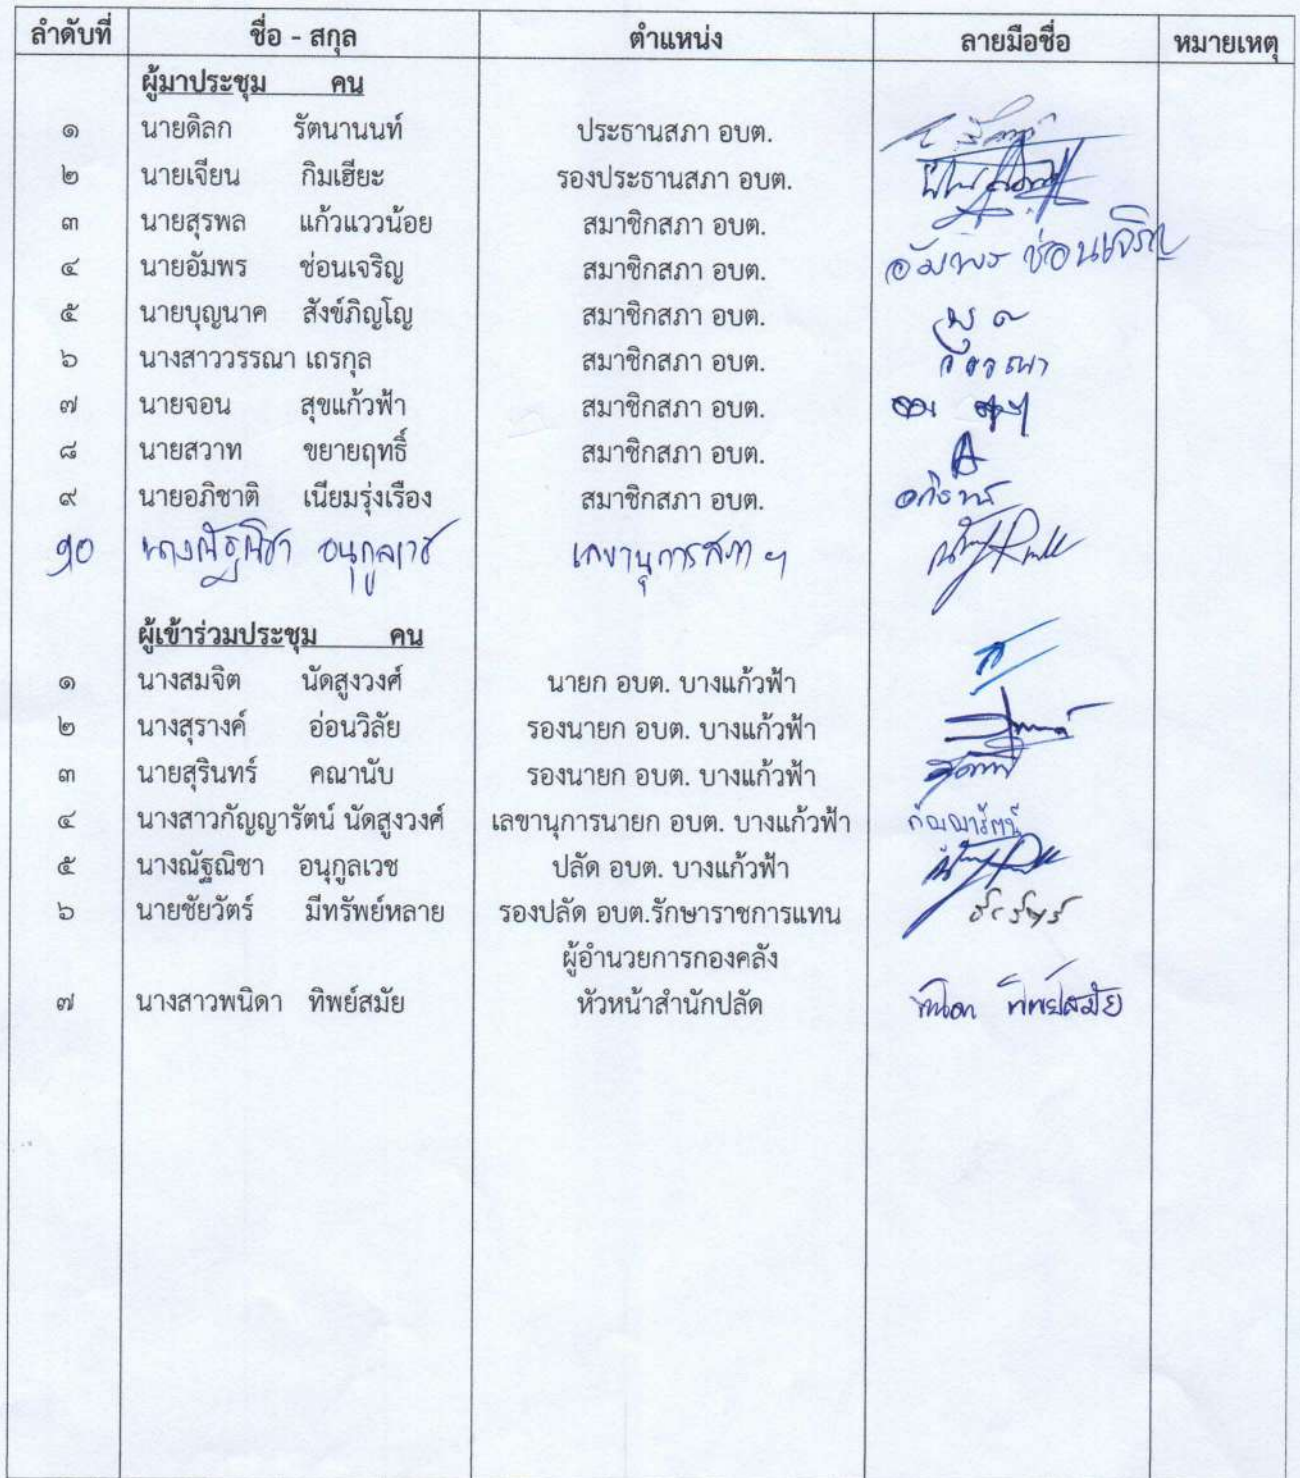 ลำดับที่ ชื่อ - สกุล ตำแหน่ง ลายมือชื่อ หมายเหตุ
ผู้มาประชุม คน
๑ นายดิลก รัตนานนท์ ประธานสภา อบต.
๒ นายเจียน กิมเฮียะ รองประธานสภา อบต.
๓ นายสุรพล แก้วแววน้อย สมาชิกสภา อบต.
๔ นายอัมพร ช่อนเจริญ สมาชิกสภา อบต. อัมพร ช่อนเจริญ
๕ นายบุญนาค สังข์ภิญโญ สมาชิกสภา อบต.
๖ นางสาววรรณา เถรกุล สมาชิกสภา อบต.
๗ นายจอน สุขแก้วฟ้า สมาชิกสภา อบต.
๘ นายสวาท ขยายฤทธิ์ สมาชิกสภา อบต.
๙ นายอภิชาติ เนียมรุ่งเรือง สมาชิกสภา อบต.
๑๐ นางณัฐณิชา อนุกูลเวช เลขานุการสภาฯ
ผู้เข้าร่วมประชุม คน
๑ นางสมจิต นัดสูงวงศ์ นายก อบต. บางแก้วฟ้า
๒ นางสุรางค์ อ่อนวิลัย รองนายก อบต. บางแก้วฟ้า
๓ นายสุรินทร์ คณานับ รองนายก อบต. บางแก้วฟ้า
๔ นางสาวกัญญารัตน์ นัดสูงวงศ์ เลขานุการนายก อบต. บางแก้วฟ้า กัญญารัตน์
๕ นางณัฐณิชา อนุกูลเวช ปลัด อบต. บางแก้วฟ้า
๖ นายชัยวัตร์ มีทรัพย์หลาย รองปลัด อบต.รักษาราชการแทน
ผู้อำนวยการกองคลัง
๗ นางสาวพนิดา ทิพย์สมัย หัวหน้าสำนักปลัด พนิดา ทิพย์สมัย